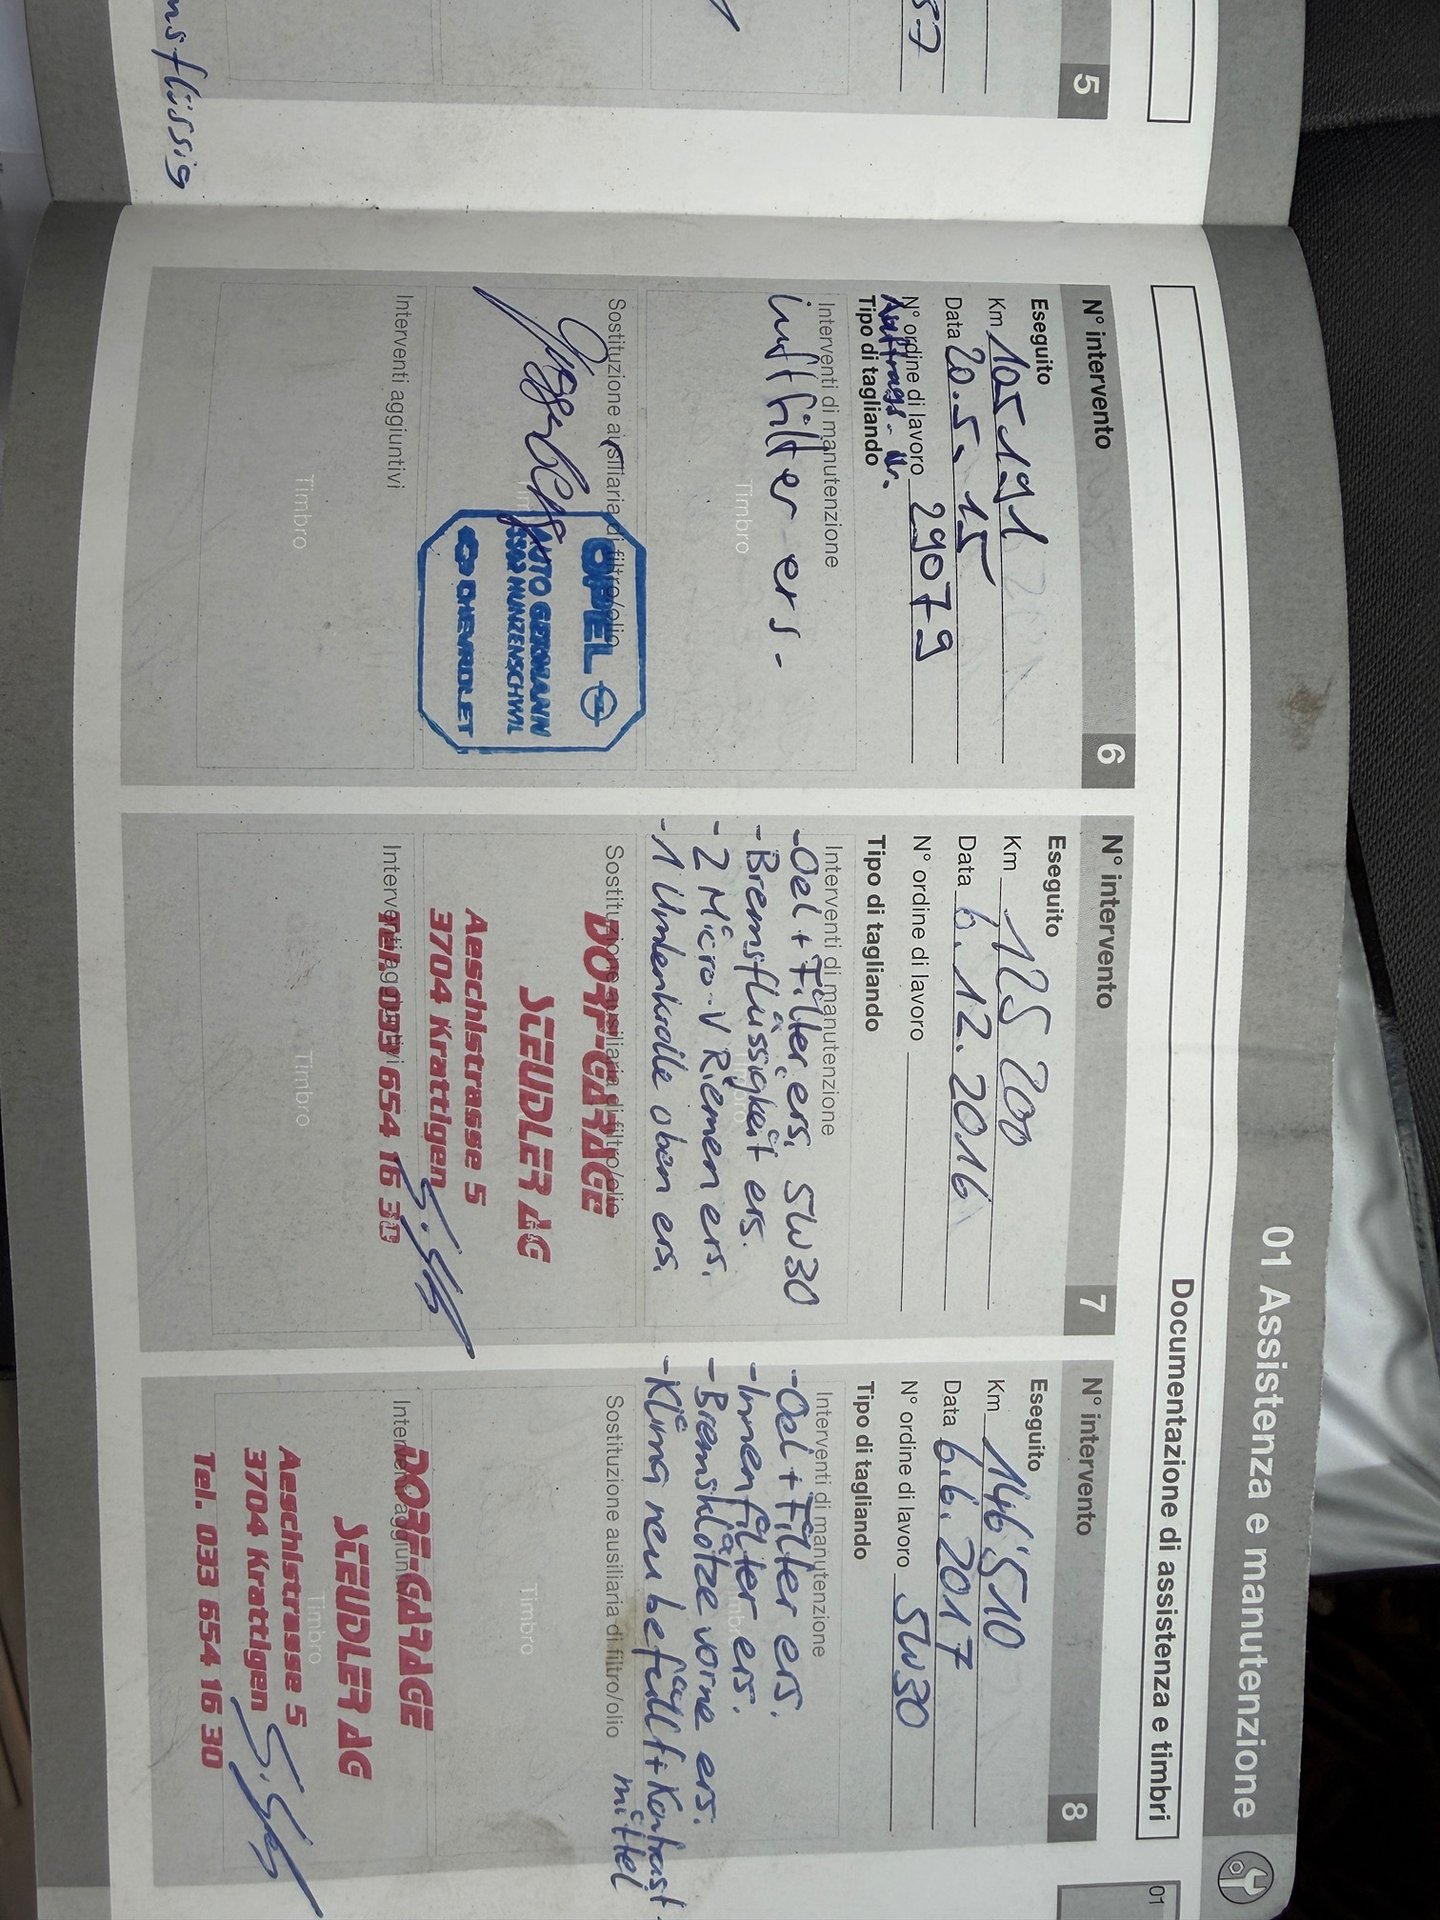 5
01 Assistenza e manutenzione
Documentazione di assistenza e timbri
01
N° intervento
6
Eseguito
Km 105 191
Data 20.5.15
N° ordine di lavoro 29079
Auftrags-Nr.
Tipo di tagliando
Interventi di manutenzione
Luftfilter ers.
Timbro
Sostituzione ausiliaria di filtro/olio
OPEL
AUTO GERMANN
5502 HUNZENSCHWIL
CHEVROLET
Interventi aggiuntivi
Timbro
N° intervento
7
Eseguito
Km 125 200
Data 6.12.2016
N° ordine di lavoro
Tipo di tagliando
Interventi di manutenzione
- Oel + Filter ers. 5W30
- Bremsflüssigkeit ers.
- 2 Micro-V Riemen ers.
- 1 Umlenkrolle oben ers.
Sostituzione ausiliaria di filtro/olio
DORF-GARAGE
SEUDLER AG
Aeschistrasse 5
3704 Krattigen
Interventi aggiuntivi
Tel. 033 654 16 30
Timbro
N° intervento
8
Eseguito
Km 146'510
Data 6.6.2017
N° ordine di lavoro 5W30
Tipo di tagliando
Interventi di manutenzione
- Oel + Filter ers.
- Innenfilter ers.
- Bremsklötze vorne ers.
- Klima neu befüllt + Kontrast-
mittel
Sostituzione ausiliaria di filtro/olio
Timbro
Interventi aggiuntivi
DORF-GARAGE
SEUDLER AG
Timbro
Aeschistrasse 5
3704 Krattigen
Tel. 033 654 16 30